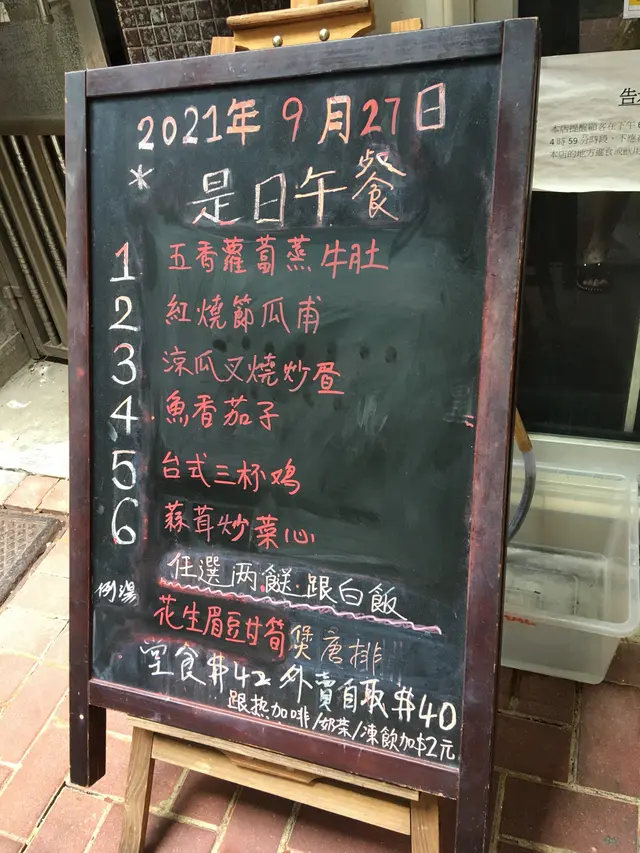 2021年9月27日
* 是日午餐
1 五香蘿蔔蒸牛肚
2 紅燒節瓜甫
3 涼瓜叉燒炒蛋
4 魚香茄子
5 台式三杯鸡
6 蒜茸炒菜心
任選两餸跟白飯
例湯 花生眉豆甘筍煲唐排
堂食$42 外賣自取$40
跟热加啡/奶茶/凍飲加$2元
本店提醒顧客在下午6
4時59分時段,不應